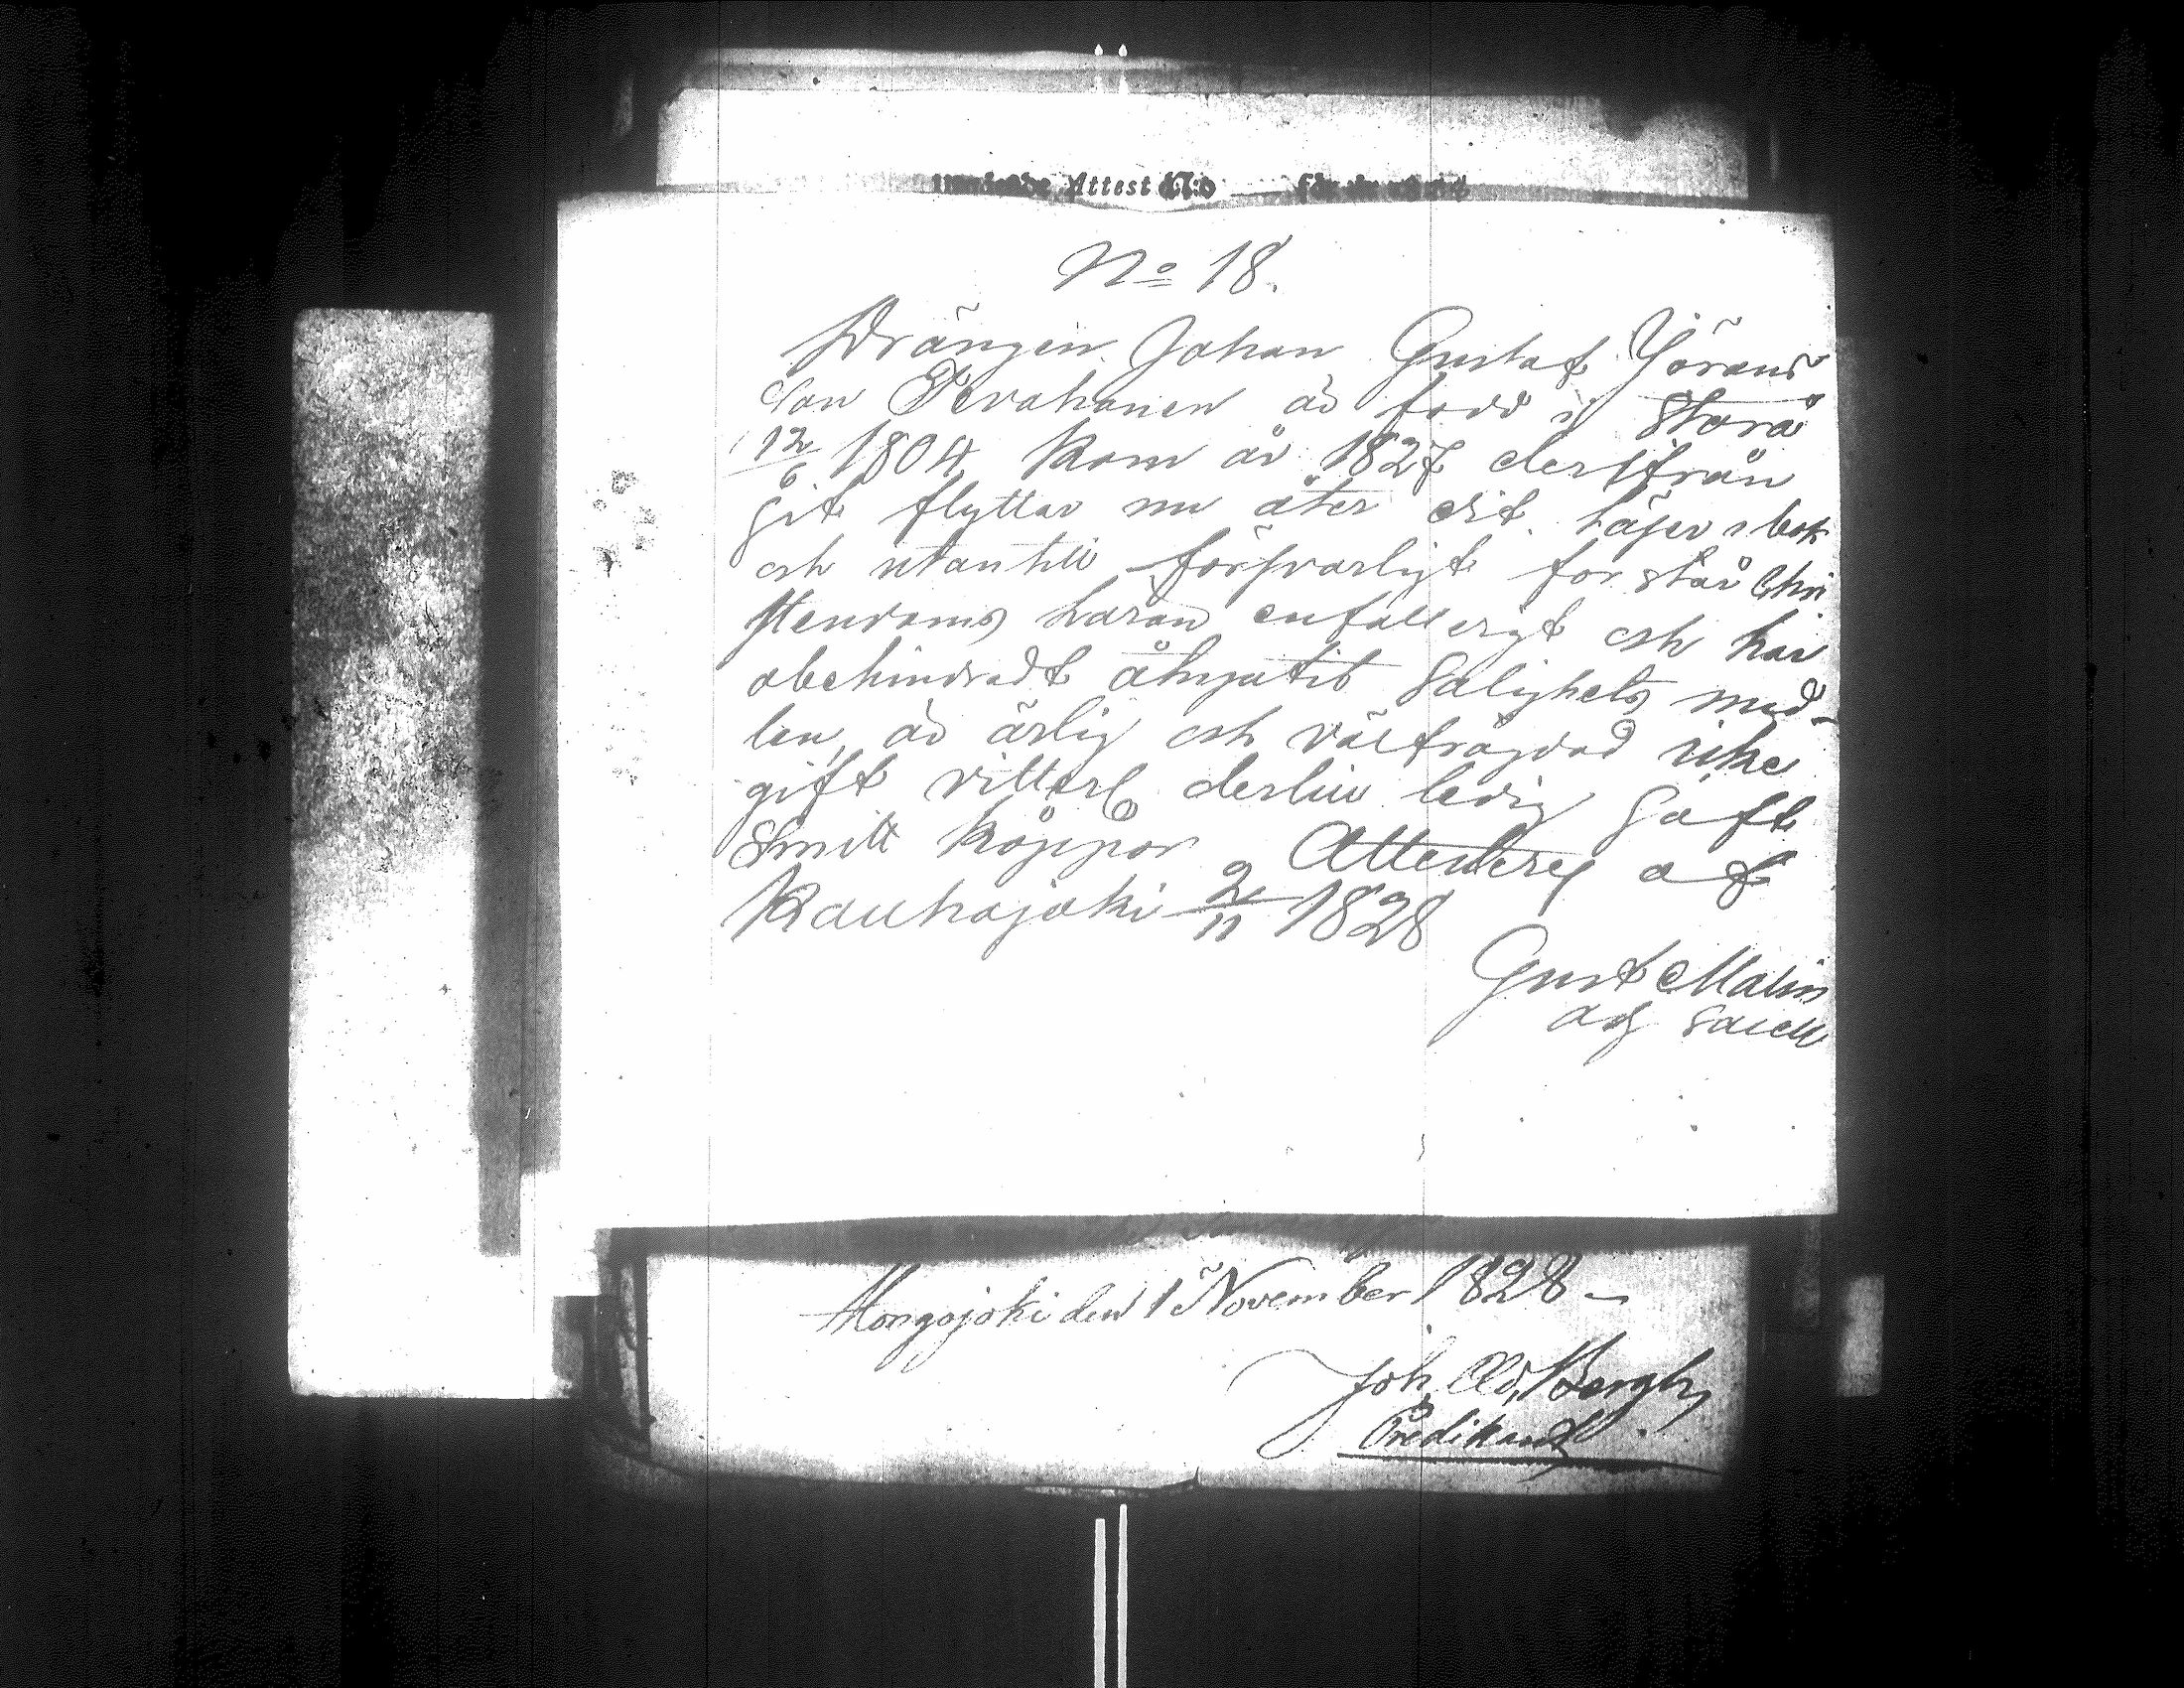 Attest N:o
No 18.
Drängen Johan Gustaf Jörans
son Pevahonen är född i Storå
12/6 1804 kom år 1827 dersifrån
hit flyttar nu åter dit. Läser i bok
och utantill försvarligt förstår Chri
stendoms läran enfalleigt och har
obehindradt åtnjutit Salighets med-
len, är ärlig och välfrägdad icke
gift vitterl derlur ledig haft
Smitt koppor Attesterel af
Kauhajoki 2/11 1828
Gust Malin
adj Sacell
Mongojoki den 1 November 1828 –
Joh. Ad, Bergh,
Predikant.